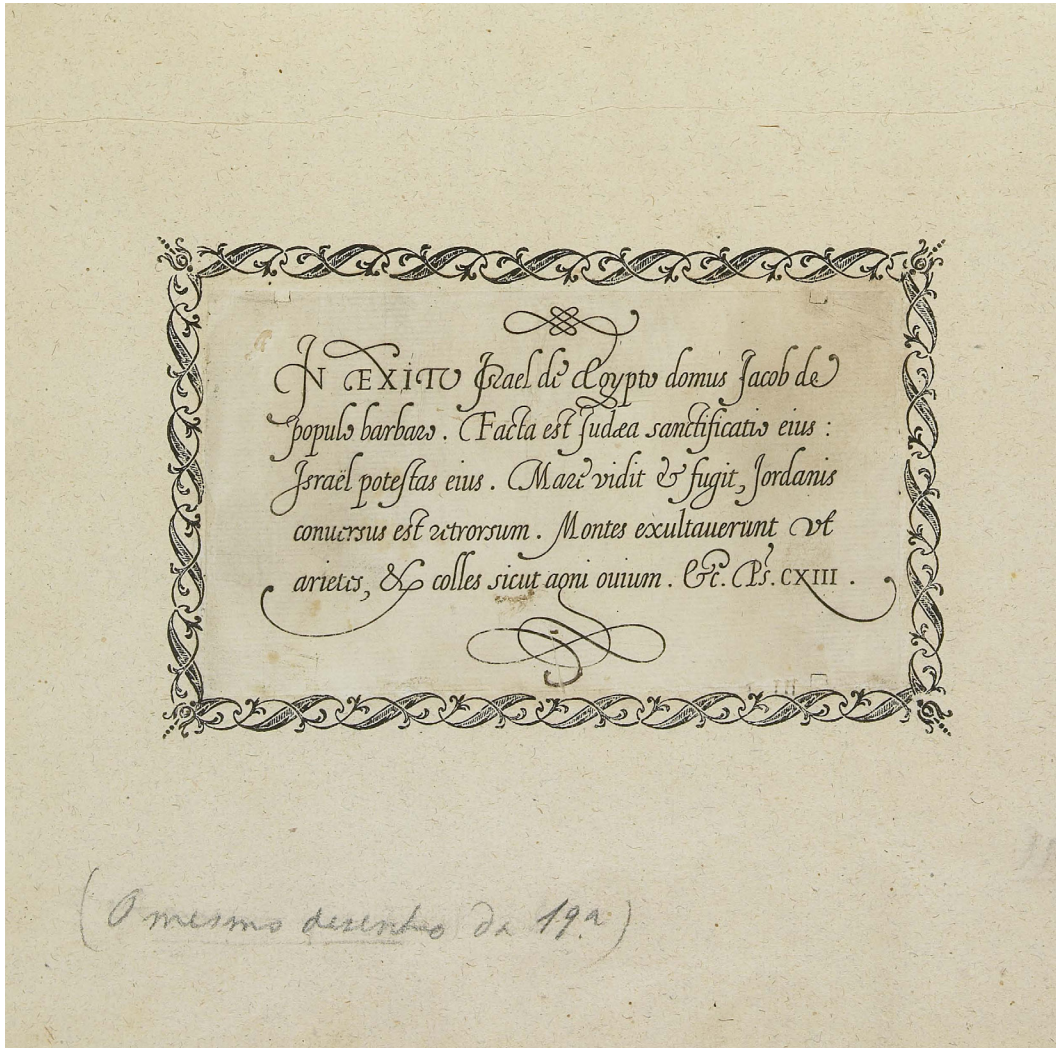 IN EXITU Israel de Ægypto domus Jacob de
populo barbaro. Facta est Judæa sanctificatio eius:
Israël potestas eius. Mare vidit & fugit, Jordanis
conuersus est retrorsum. Montes exultauerunt vt
arietes, & colles sicut agni ouium. &c. Ps. CXIII.
(O mesmo desenho da 19ª)